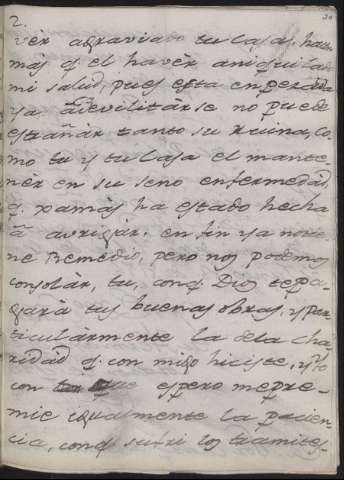 2.
ver agraviado tu casa, hai
mas q. el haver aniquilado
mi salud, pues esta enseñada
ya â devilitàrse no puede
estrañàr tanto su ruina, co-
mo tu y tu Casa el mante-
nèr en su seno enfermedad,
q. xamàs ha estado hecha
â avrigàr: en fin ya no tie-
ne Remedio, pero nos podemos
consolàr, tu, conq. Dios te pa-
garà tus buenas obras, y par-
ticulàrmente la de la cha-
ridad q. con migo hiciste, y Yo
con que espero me pre-
mie igualmente la pacien-
cia, conq. sufrì los tramites